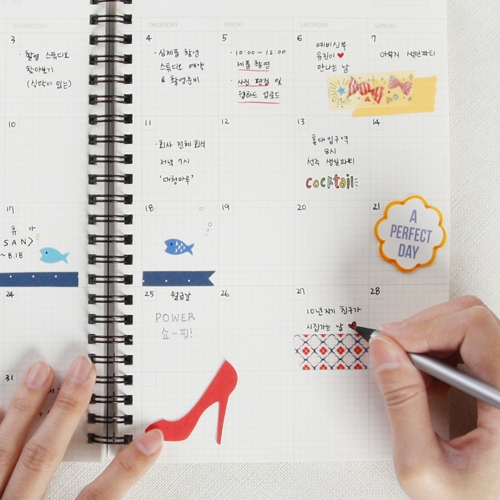 WEDNESDAY
THURSDAY
FRIDAY
SATURDAY
SUNDAY
3
· 촬영 스튜디오
찾아보기
(식탁이 있는)
4
· 신제품 촬영
스튜디오 예약
& 촬영준비
5
· 10:00 - 12:00
제품 촬영
· 사진 편집 및
웹하드 업로드
6
예비신부
만나는 날
7
생일파티
10
11
· 회사 전체 회식
저녁 7시
12
13
홍대입구역
8시
생일파티
cocktail
14
17
휴가
SAN>
~8.18
18
19
20
21
A
PERFECT
DAY
24
25
월급날
POWER
쇼-핑!
26
27
10년지기 친구가
시집가는 날
28
31